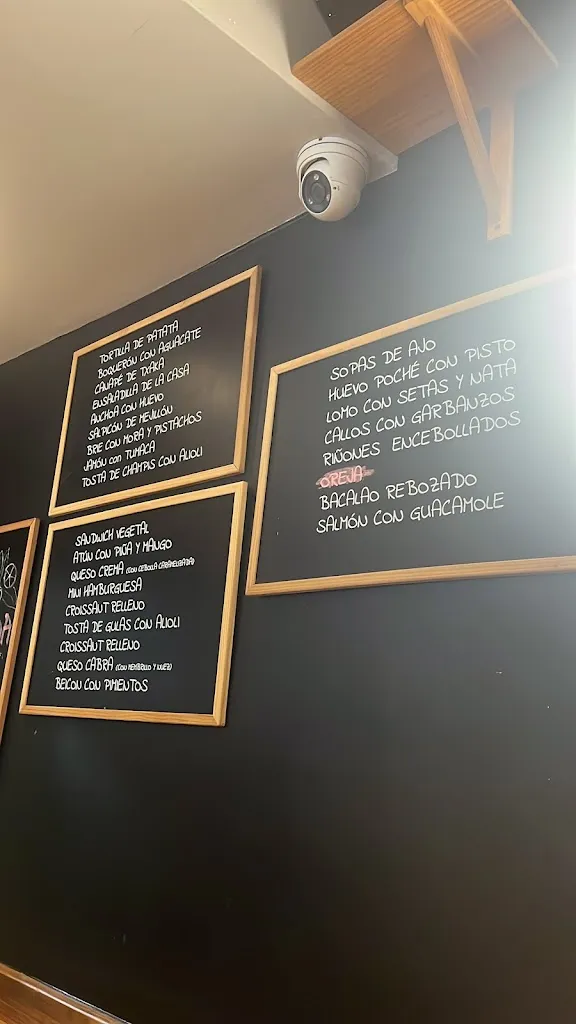 TORTILLA DE PATATA
BOQUERÓN CON AGUACATE
CANAPÉ DE TXAKA
ENSALADILLA DE LA CASA
ANCHOA CON HUEVO
SALPICÓN DE MEJILLÓN
BRIE CON MORA Y PISTACHOS
JAMÓN CON TUMACA
TOSTA DE CHAMPIS CON ALIOLI
SANDWICH VEGETAL
ATÚN CON PIÑA Y MANGO
QUESO CREMA (CON CEBOLLA CARAMELIZADA)
MINI HAMBURGUESA
CROISSANT RELLENO
TOSTA DE GULAS CON ALIOLI
CROISSANT RELLENO
QUESO CABRA (CON MEMBRILLO Y NUEZ)
BEICON CON PIMIENTOS
SOPAS DE AJO
HUEVO POCHÉ CON PISTO
LOMO CON SETAS Y NATA
CALLOS CON GARBANZOS
RIÑONES ENCEBOLLADOS
OREJA
BACALAO REBOZADO
SALMÓN CON GUACAMOLE